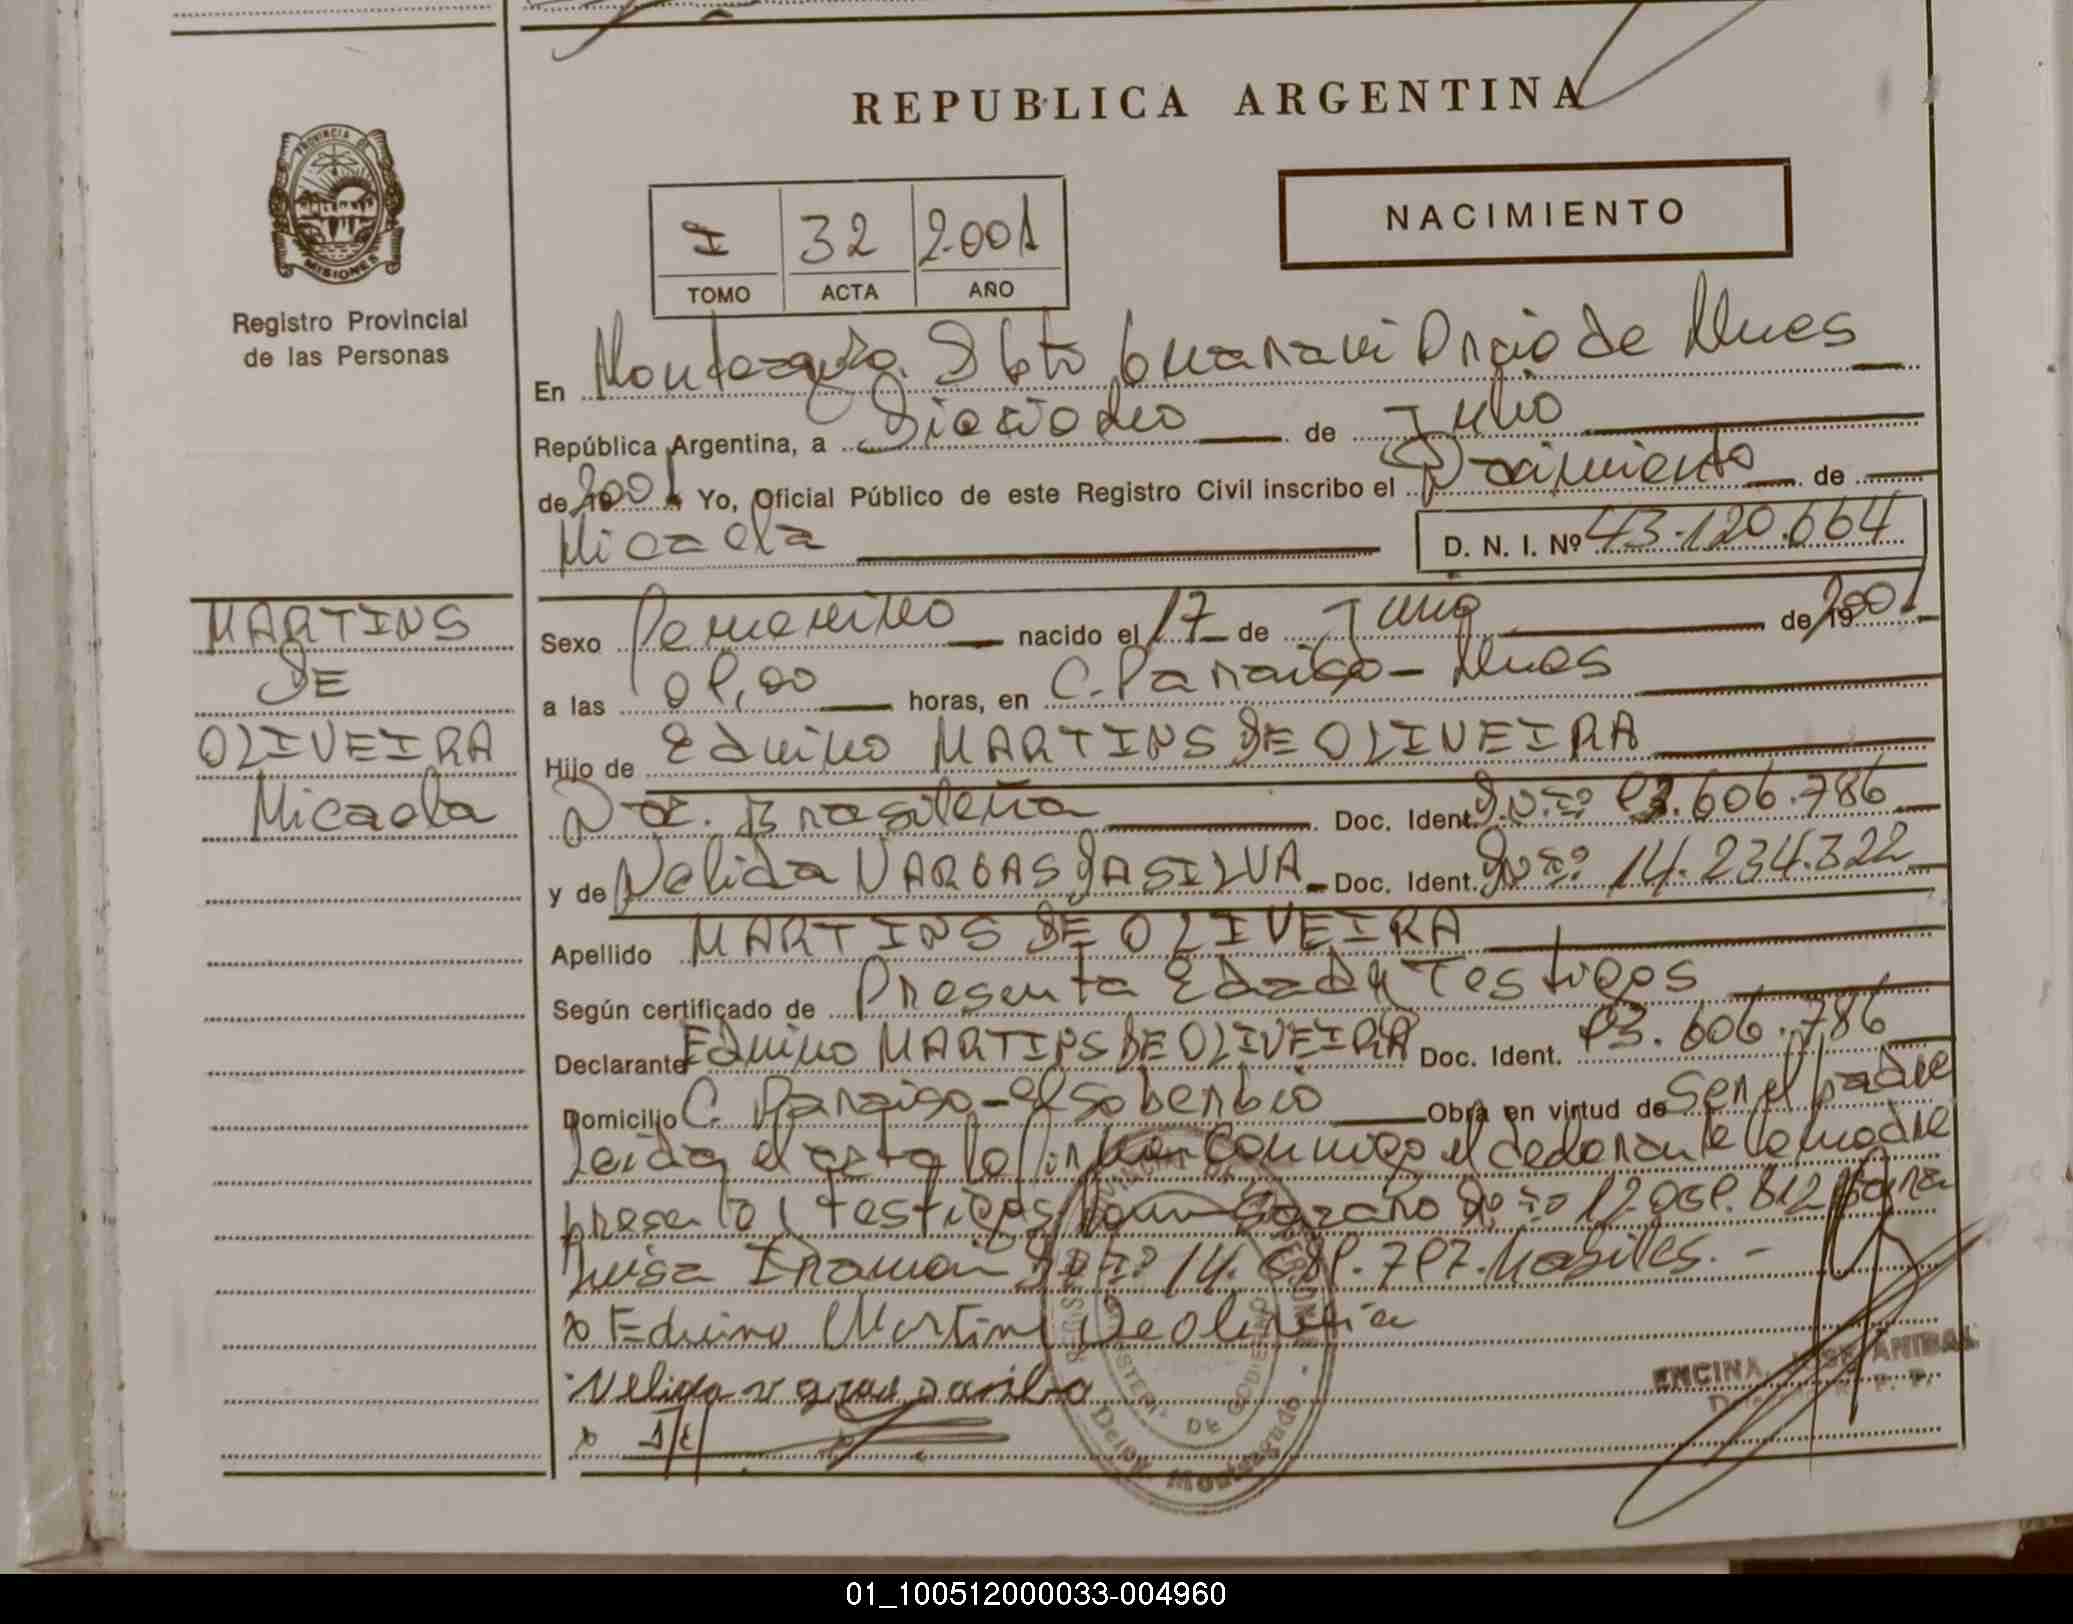 REPUBLICA ARGENTINA
PROVINCIA DE
MISIONES
Registro Provincial
de las Personas
I 32 2.001
TOMO ACTA AÑO
NACIMIENTO
En Monteagudo. Dpto Guarani Prcia de Mnes
República Argentina, a Dieciocho de Julio
de 2001 Yo, Oficial Público de este Registro Civil inscribo el Nacimiento de
Micaela D. N. I. Nº 43.120.664
MARTINS
DE
OLIVEIRA
Micaela
Sexo Femenino nacido el 17 de de 2001
a las 08,00 horas, en C. Paraiso - Mnes
Hijo de Eduino MARTINS DE OLIVEIRA
Nac. Brasileña Doc. Ident. 93.606.786
y de Nelida VARGAS DA SILVA Doc. Ident. 14.234.322
Apellido MARTINS DE OLIVEIRA
Según certificado de Presenta Edad y Testigos
Declarante Eduino MARTINS DE OLIVEIRA Doc. Ident. 93.606.786
Domicilio C. Paraiso - El Soberbio Obra en virtud de Ser el padre
Leida el acta la firman conmigo el declarante la madre
presente y testigos
Luisa habiles. -
x Eduino Martins De Oliveira
Nelida
ENCINA, JOSE ANIBAL
MINISTERIO DE GOBIERNO
Deleg. Monteagudo
01_100512000033-004960